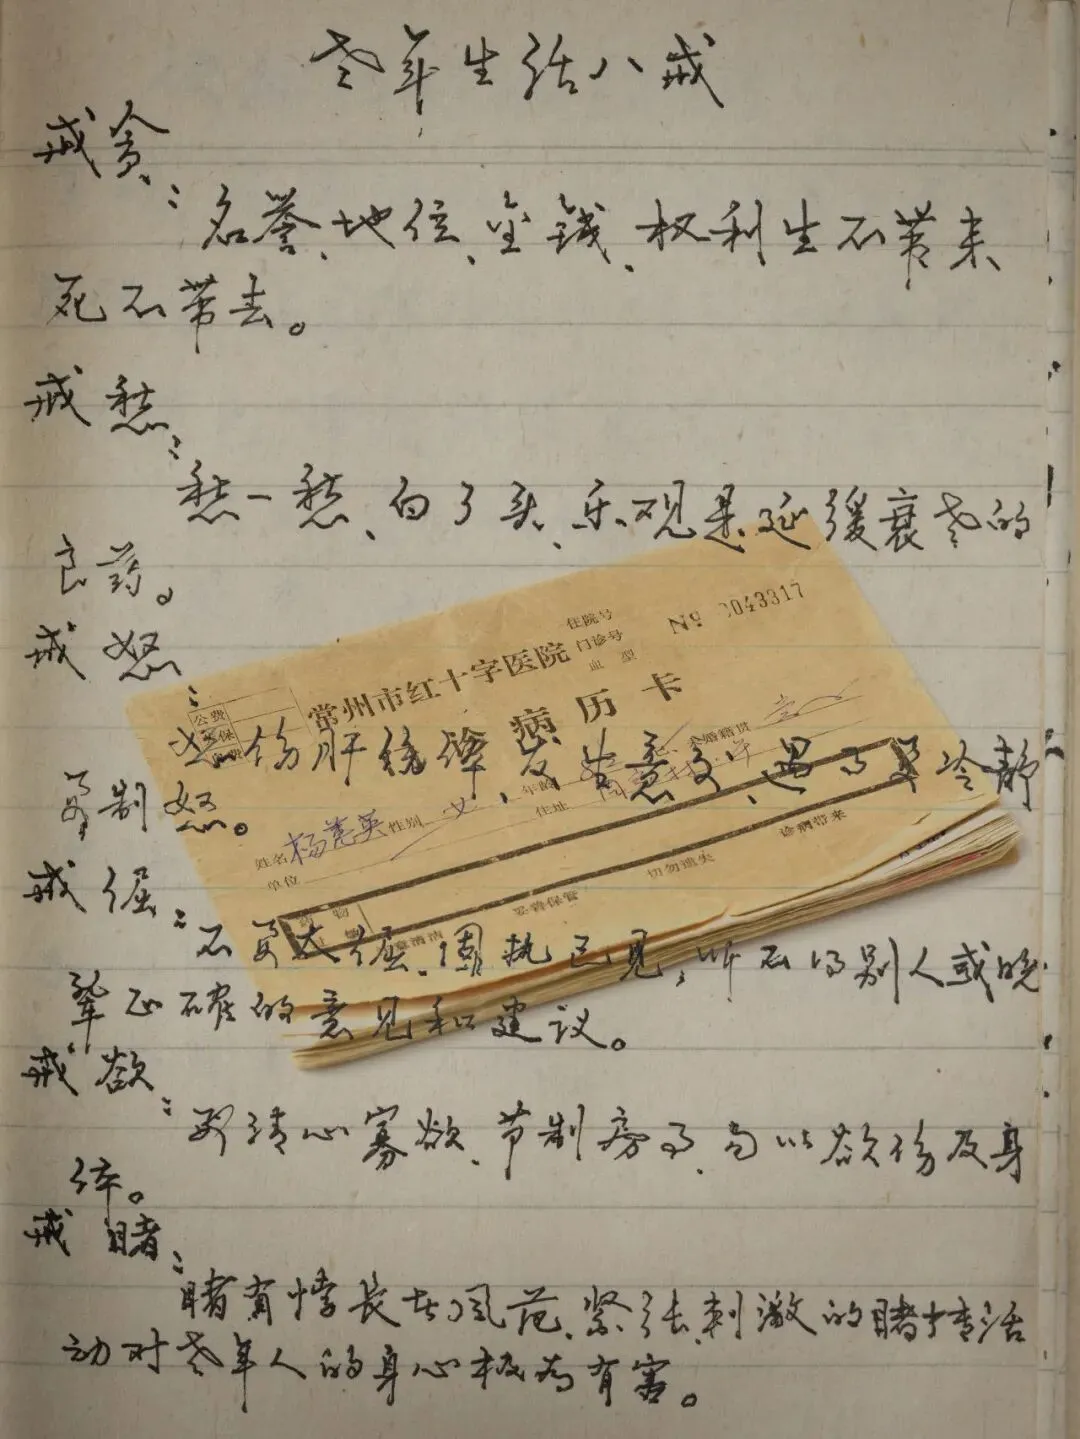 老年生活八戒
戒贪：
名誉、地位、金钱、权利生不带来
死不带去。
戒愁：
愁一愁、白了头、乐观是延缓衰老的
良药。
戒怒：
怒伤肝 意 遇事要冷静
要制怒。
戒倔：
不要太倔、固执己见，听不得别人或晚
辈正确的意见和建议。
戒欲：
要清心寡欲、节制房事、勿以欲伤及身
体。
戒赌：
赌有悖长者风范、紧张刺激的赌博活
动对老年人的身心极为有害。
常州市红十字医院
住院号
门诊号
血型
№ 043317
病历卡
公费
姓名 杨惠英 性别 女 年龄 婚 籍贯
单位 住址
药物
妥善保管 切勿遗失 诊病带来